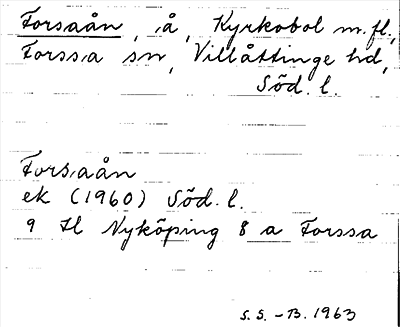 Forsaån, å, Kyrkobol m.fl.,
Forssa sn, Villåttinge hd,
Söd. l.
Forsaån
ek (1960) Söd. l.
9 H Nyköping 8 a Forssa
S.S. -B. 1963